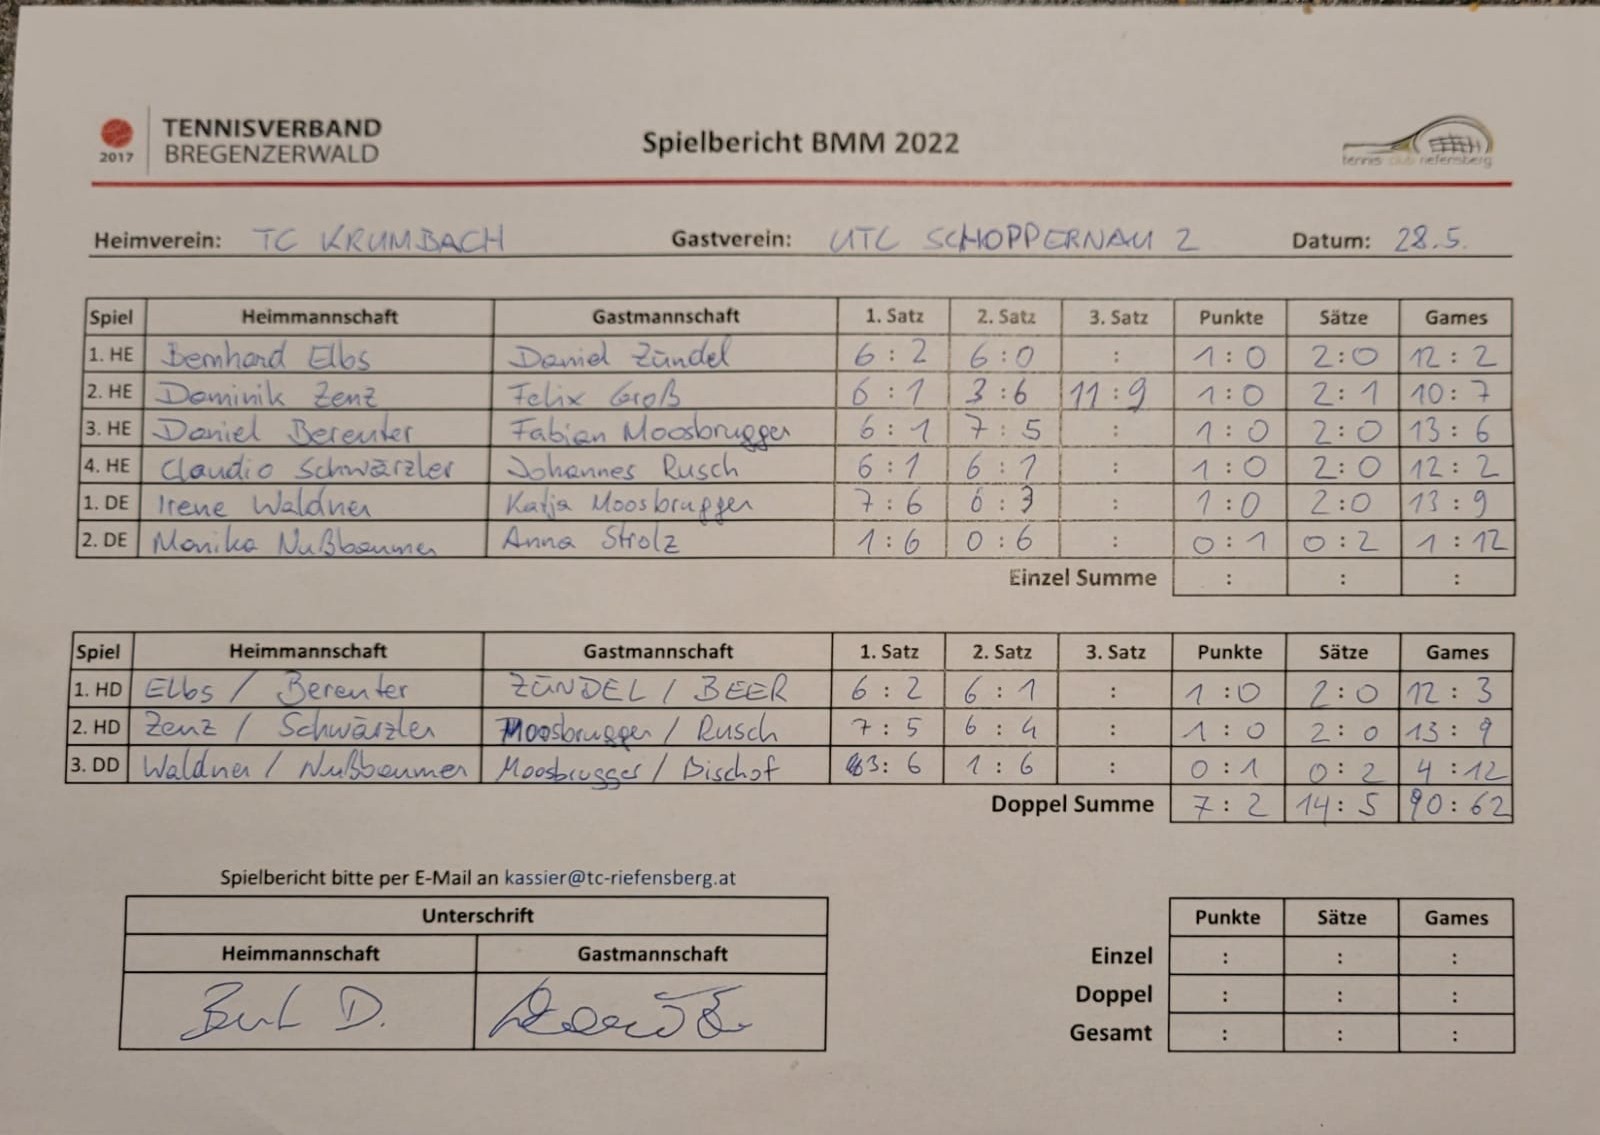 TENNISVERBAND
2017 BREGENZERWALD
Spielbericht BMM 2022
tennis club riefensberg
Heimverein: TC KRUMBACH Gastverein: UTC SCHOPPERNAU 2 Datum: 28.5.
Spiel Heimmannschaft Gastmannschaft 1. Satz 2. Satz 3. Satz Punkte Sätze Games
1. HE Bernhard Elbs Daniel Zündel 6 : 2 6 : 0 : 1 : 0 2 : 0 12 : 2
2. HE Dominik Zenz Felix Groß 6 : 1 3 : 6 11 : 9 1 : 0 2 : 1 10 : 7
3. HE Daniel Bereuter Fabian Moosbrugger 6 : 1 7 : 5 : 1 : 0 2 : 0 13 : 6
4. HE Claudio Schwärzler Johannes Rusch 6 : 1 6 : 1 : 1 : 0 2 : 0 12 : 2
1. DE Irene Waldner Katja Moosbrugger 7 : 6 6 : 3 : 1 : 0 2 : 0 13 : 9
2. DE Monika Nußbaumer Anna Strolz 1 : 6 0 : 6 : 0 : 1 0 : 2 1 : 12
Einzel Summe : : :
Spiel Heimmannschaft Gastmannschaft 1. Satz 2. Satz 3. Satz Punkte Sätze Games
1. HD Elbs / Bereuter ZÜNDEL / BEER 6 : 2 6 : 1 : 1 : 0 2 : 0 12 : 3
2. HD Zenz / Schwärzler Moosbrugger / Rusch 7 : 5 6 : 4 : 1 : 0 2 : 0 13 : 9
3. DD Waldner / Nußbaumer Moosbrugger / Bischof 3 : 6 1 : 6 : 0 : 1 0 : 2 4 : 12
Doppel Summe 7 : 2 14 : 5 90 : 62
Spielbericht bitte per E-Mail an kassier@tc-riefensberg.at
Unterschrift
Heimmannschaft Gastmannschaft
Punkte Sätze Games
Einzel : : :
Doppel : : :
Gesamt : : :